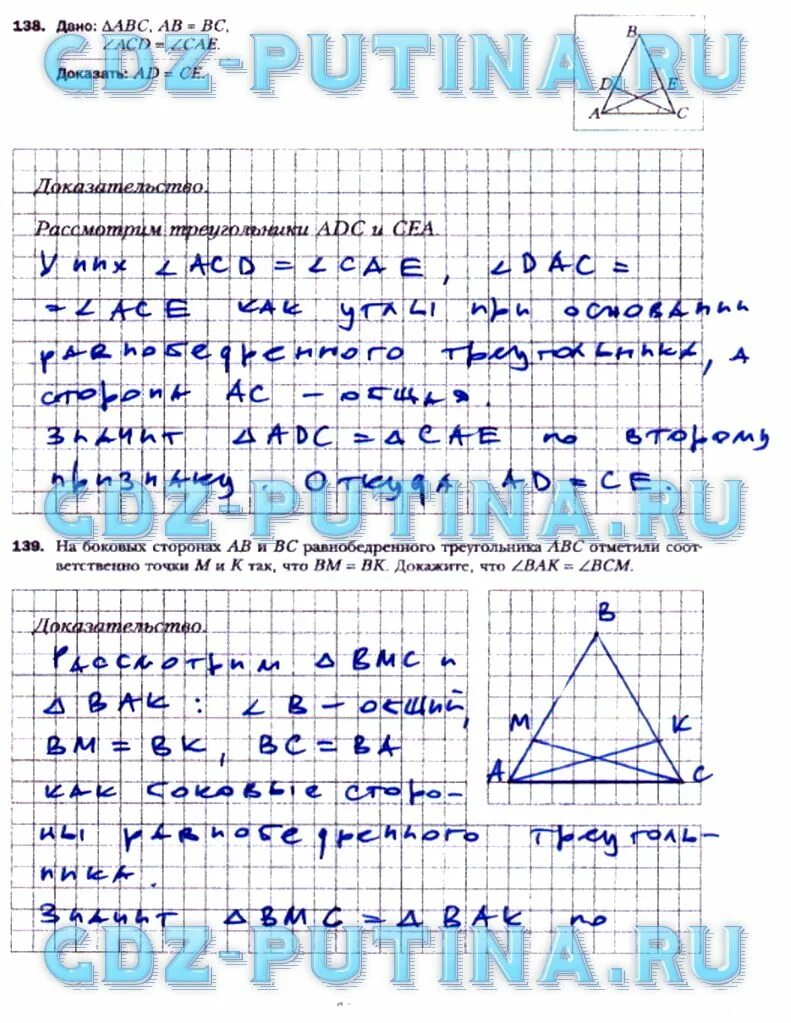 138. Дано: ΔABC, AB = BC,
∠ACD = ∠CAE.
Доказать: AD = CE.
B
D
E
A
C
GDZ-PUTINA.RU
Доказательство.
Рассмотрим треугольники ADC и CEA.
У них ∠ACD = ∠CAE, ∠DAC =
= ∠ACE как углы при основании
равнобедренного треугольника, а
сторона AC – общая.
Значит ΔADC = ΔCAE по второму
признаку. Откуда AD = CE.
GDZ-PUTINA.RU
139. На боковых сторонах AB и BC равнобедренного треугольника ABC отметили соот-
ветственно точки M и K так, что BM = BK. Докажите, что ∠BAK = ∠BCM.
Доказательство.
Рассмотрим ΔBMC и
ΔBAK: ∠B – общий,
BM = BK, BC = BA
как боковые сторо-
ны равнобедренного треуголь-
ника.
Значит ΔBMC = ΔBAK по
B
M
K
A
C
GDZ-PUTINA.RU